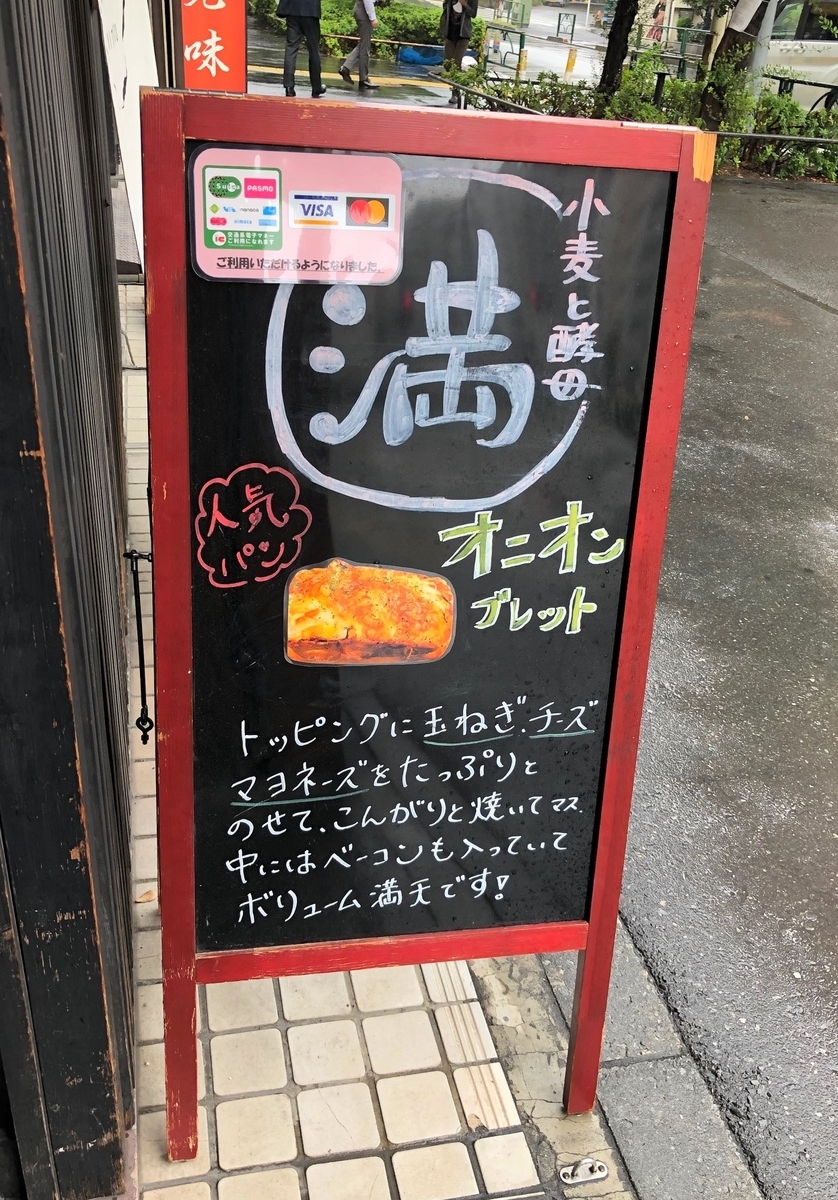 味
Suica
PASMO
nanaco
nimoca
交通系電子マネー
ご利用になれます
VISA
ご利用いただけるようになりました。
小麦と酵母
満
人気
パン
オニオン
ブレット
トッピングに玉ねぎ、チーズ
マヨネーズをたっぷりと
のせて、こんがりと焼いてマス.
中にはベーコンも入っていて
ボリューム満天です!